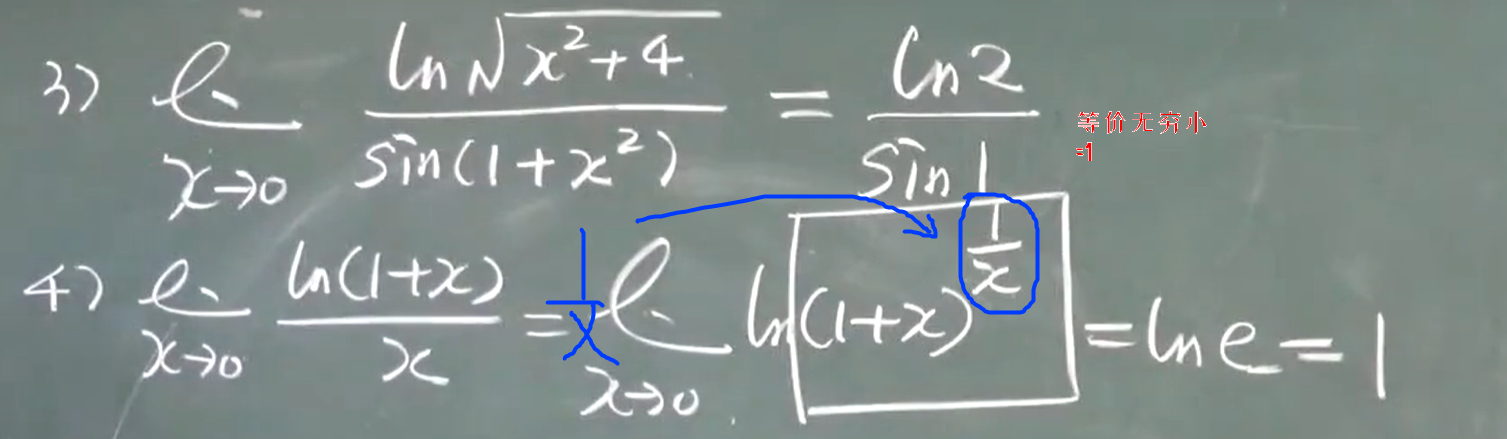 3) lim x→0 ln√(x²+4) / sin(1+x²) = ln2 / sin1
等价无穷小
=1
4) lim x→0 ln(1+x) / x = 1/x lim x→0 ln(1+x)^(1/x) = ln e = 1